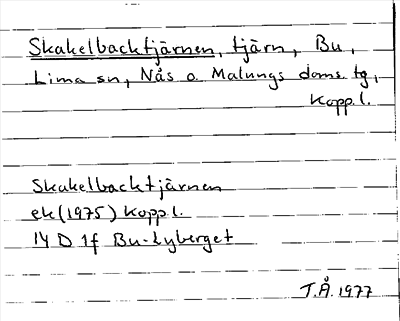 Skakelbacktjärnen, tjärn, Bu,
Lima sn, Nås o. Malungs doms. tg,
Kopp. l.
Skakelbacktjärnen
ek (1975) Kopp l.
14 D 1f Bu-Lyberget
T.Å. 1977